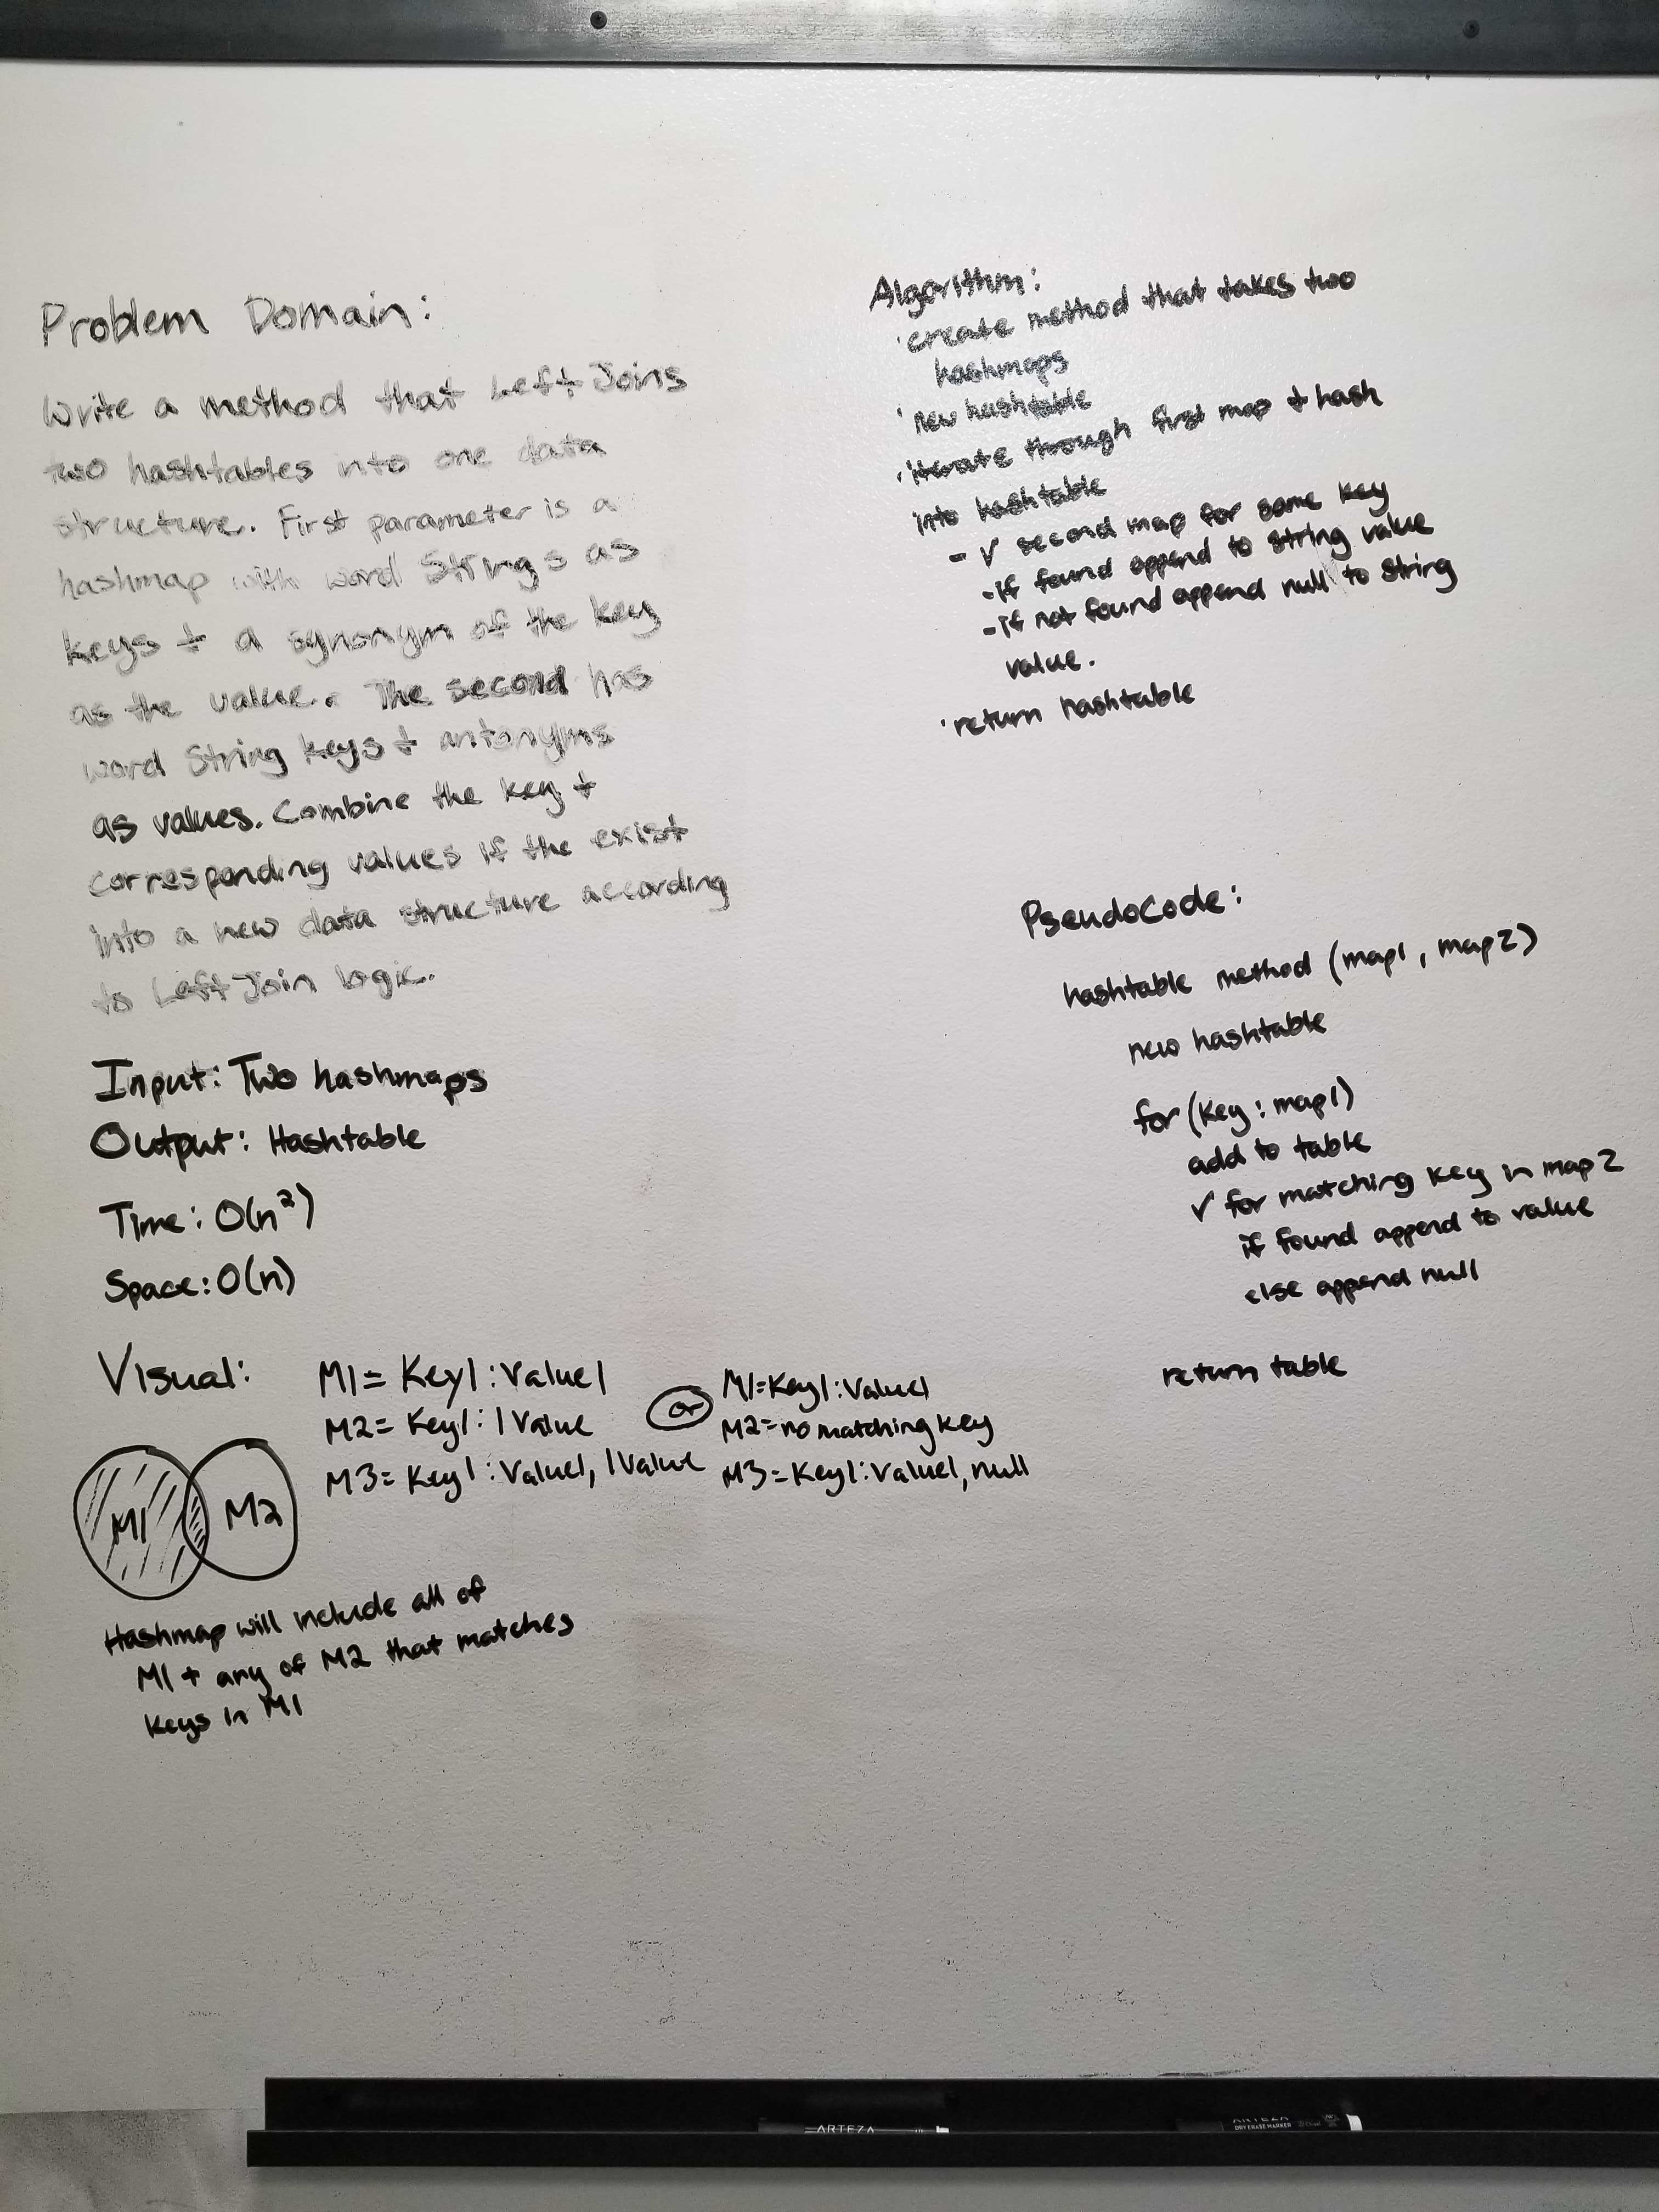 Problem Domain:
Write a method that Left Joins
two hashtables into one data
structure. First parameter is a
hashmap with word Strings as
keys + a synonym of the key
as the value. The second has
word String keys + antonyms
as values. Combine the key +
corresponding values if the exist
into a new data structure according
to Left Join logic.
Input: Two hashmaps
Output: Hashtable
Time: O(n²)
Space: O(n)
Visual:
M1= Key1: Value1
M2= Key1: 1Value
M3= Key1: Value1, 1Value
or
M1=Key1: Value1
M2=no matching key
M3=Key1: Value1, null
M1
M2
Hashmap will include all of
M1 + any of M2 that matches
keys in M1
Algorithm:
· create method that takes two
hashmaps
· new hashtable
· iterate through first map + hash
into hashtable
- ✓ second map for same key
- if found append to string value
- if not found append null to string
value.
· return hashtable
Pseudocode:
hashtable method (map1, map2)
new hashtable
for (key: map1)
add to table
✓ for matching key in map2
if found append to value
else append null
return table
ARTEZA
ARTEZA
DRY ERASE MARKER